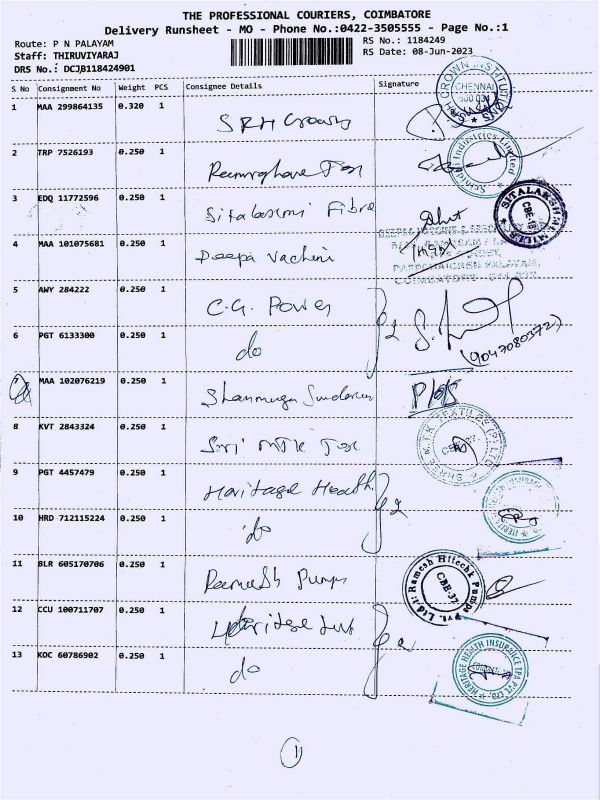 THE PROFESSIONAL COURIERS, COIMBATORE
Delivery Runsheet - MO - Phone No.:0422-3505555 - Page No.:1
Route: P N PALAYAM
RS No.: 1184249
Staff: THIRUVIYARAJ
RS Date: 08-Jun-2023
DRS No.: DCJB118424901
S No Consignment No Weight PCS Consignee Details Signature
1 MAA 299864135 0.320 1 SRH Crown
2 TRP 7526193 0.250 1
3 EDQ 11772596 0.250 1 Sitalaxmi Fibre
4 MAA 101075681 0.250 1 Deepa Vachini
5 AWY 284222 0.250 1 C.G. Power
6 PGT 6133300 0.250 1 do 2
(9047080372)
7 MAA 102076219 0.250 1 Shanmuga Sundaram
8 KVT 2843324 0.250 1 Sri MTK Tex
9 PGT 4457479 0.250 1 Haritage Health
10 HRD 712115224 0.250 1 do 2
11 BLR 605170706 0.250 1 Ramesh Pumps
12 CCU 100711707 0.250 1
13 KOC 60786902 0.250 1 do
CROWN INSTITUTIONS
CHENNAI
600 031
Industries-Limited
SITALAKSHMI MILLS
CBE-18
SHREE M.T.K TEXTILES (P) LTD
Ramesh Hitechk Pumps Pvt. Ltd.
CBE-37
HERITAGE HEALTH INSURANCE TPA PVT. LTD.
1